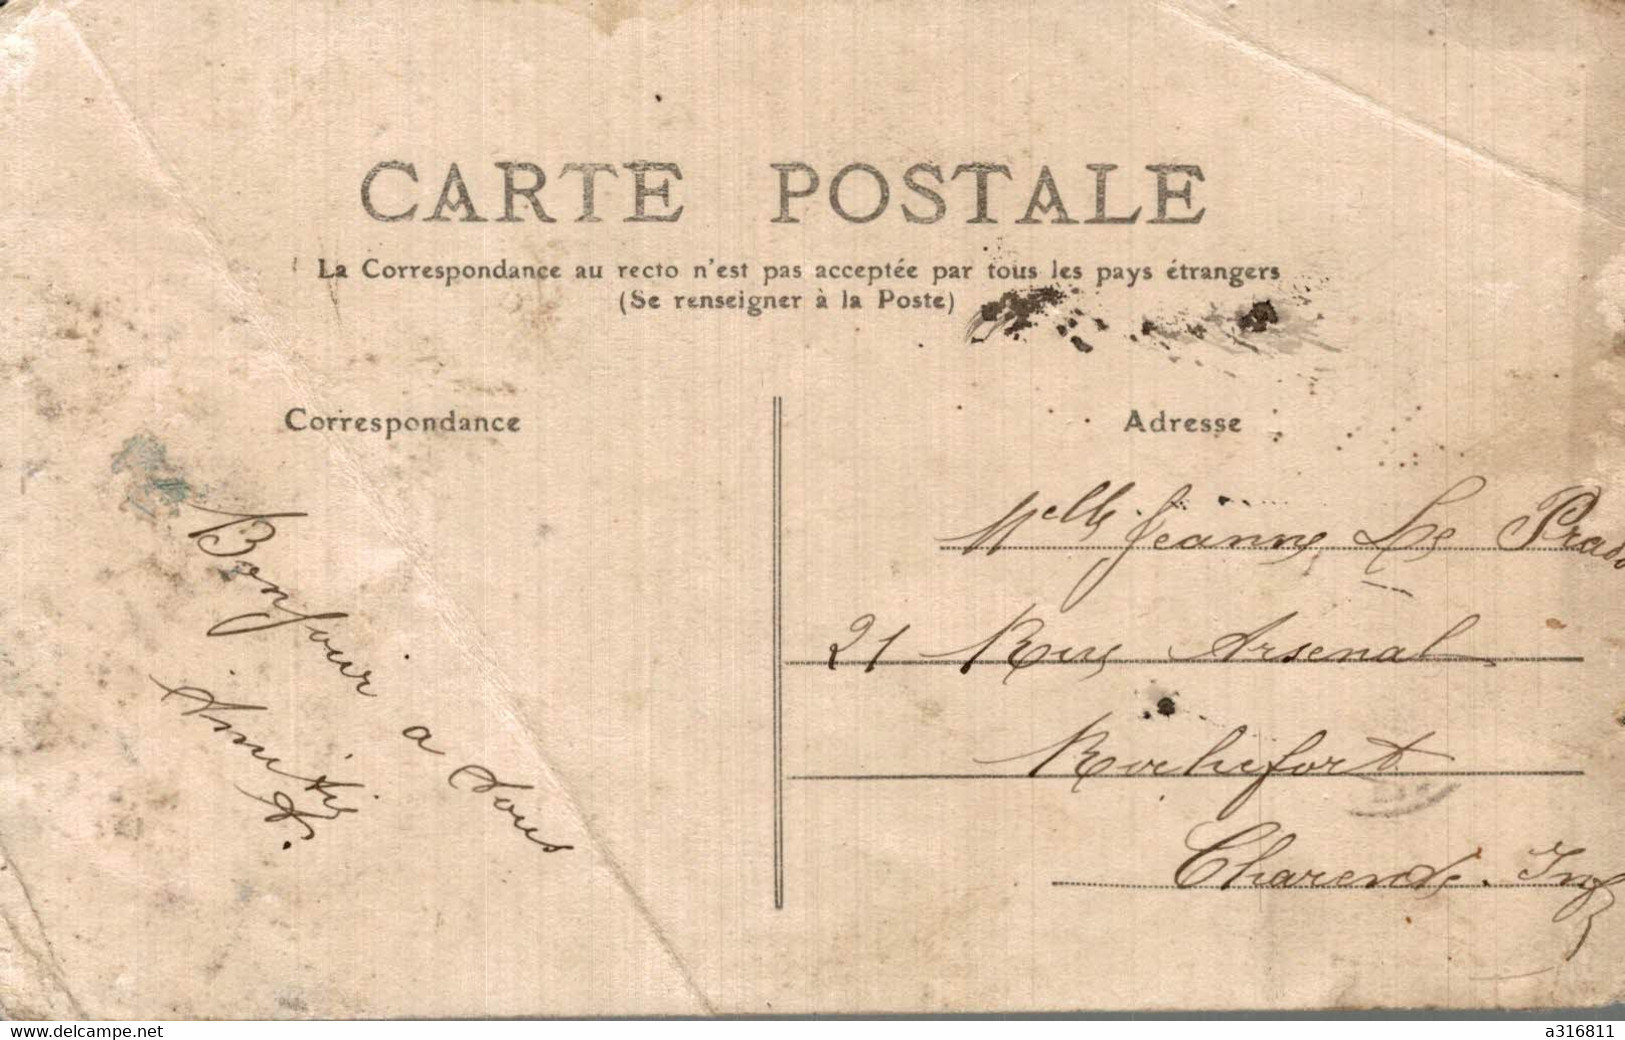 CARTE POSTALE
La Correspondance au recto n'est pas acceptée par tous les pays étrangers
(Se renseigner à la Poste)
Correspondance
Bonjour a tous
Amitié
A.
Adresse
Melle Jeanne Le Prado
21 Rue Arsenal
Rochefort
Charente. Inf
www.delcampe.net
a316811